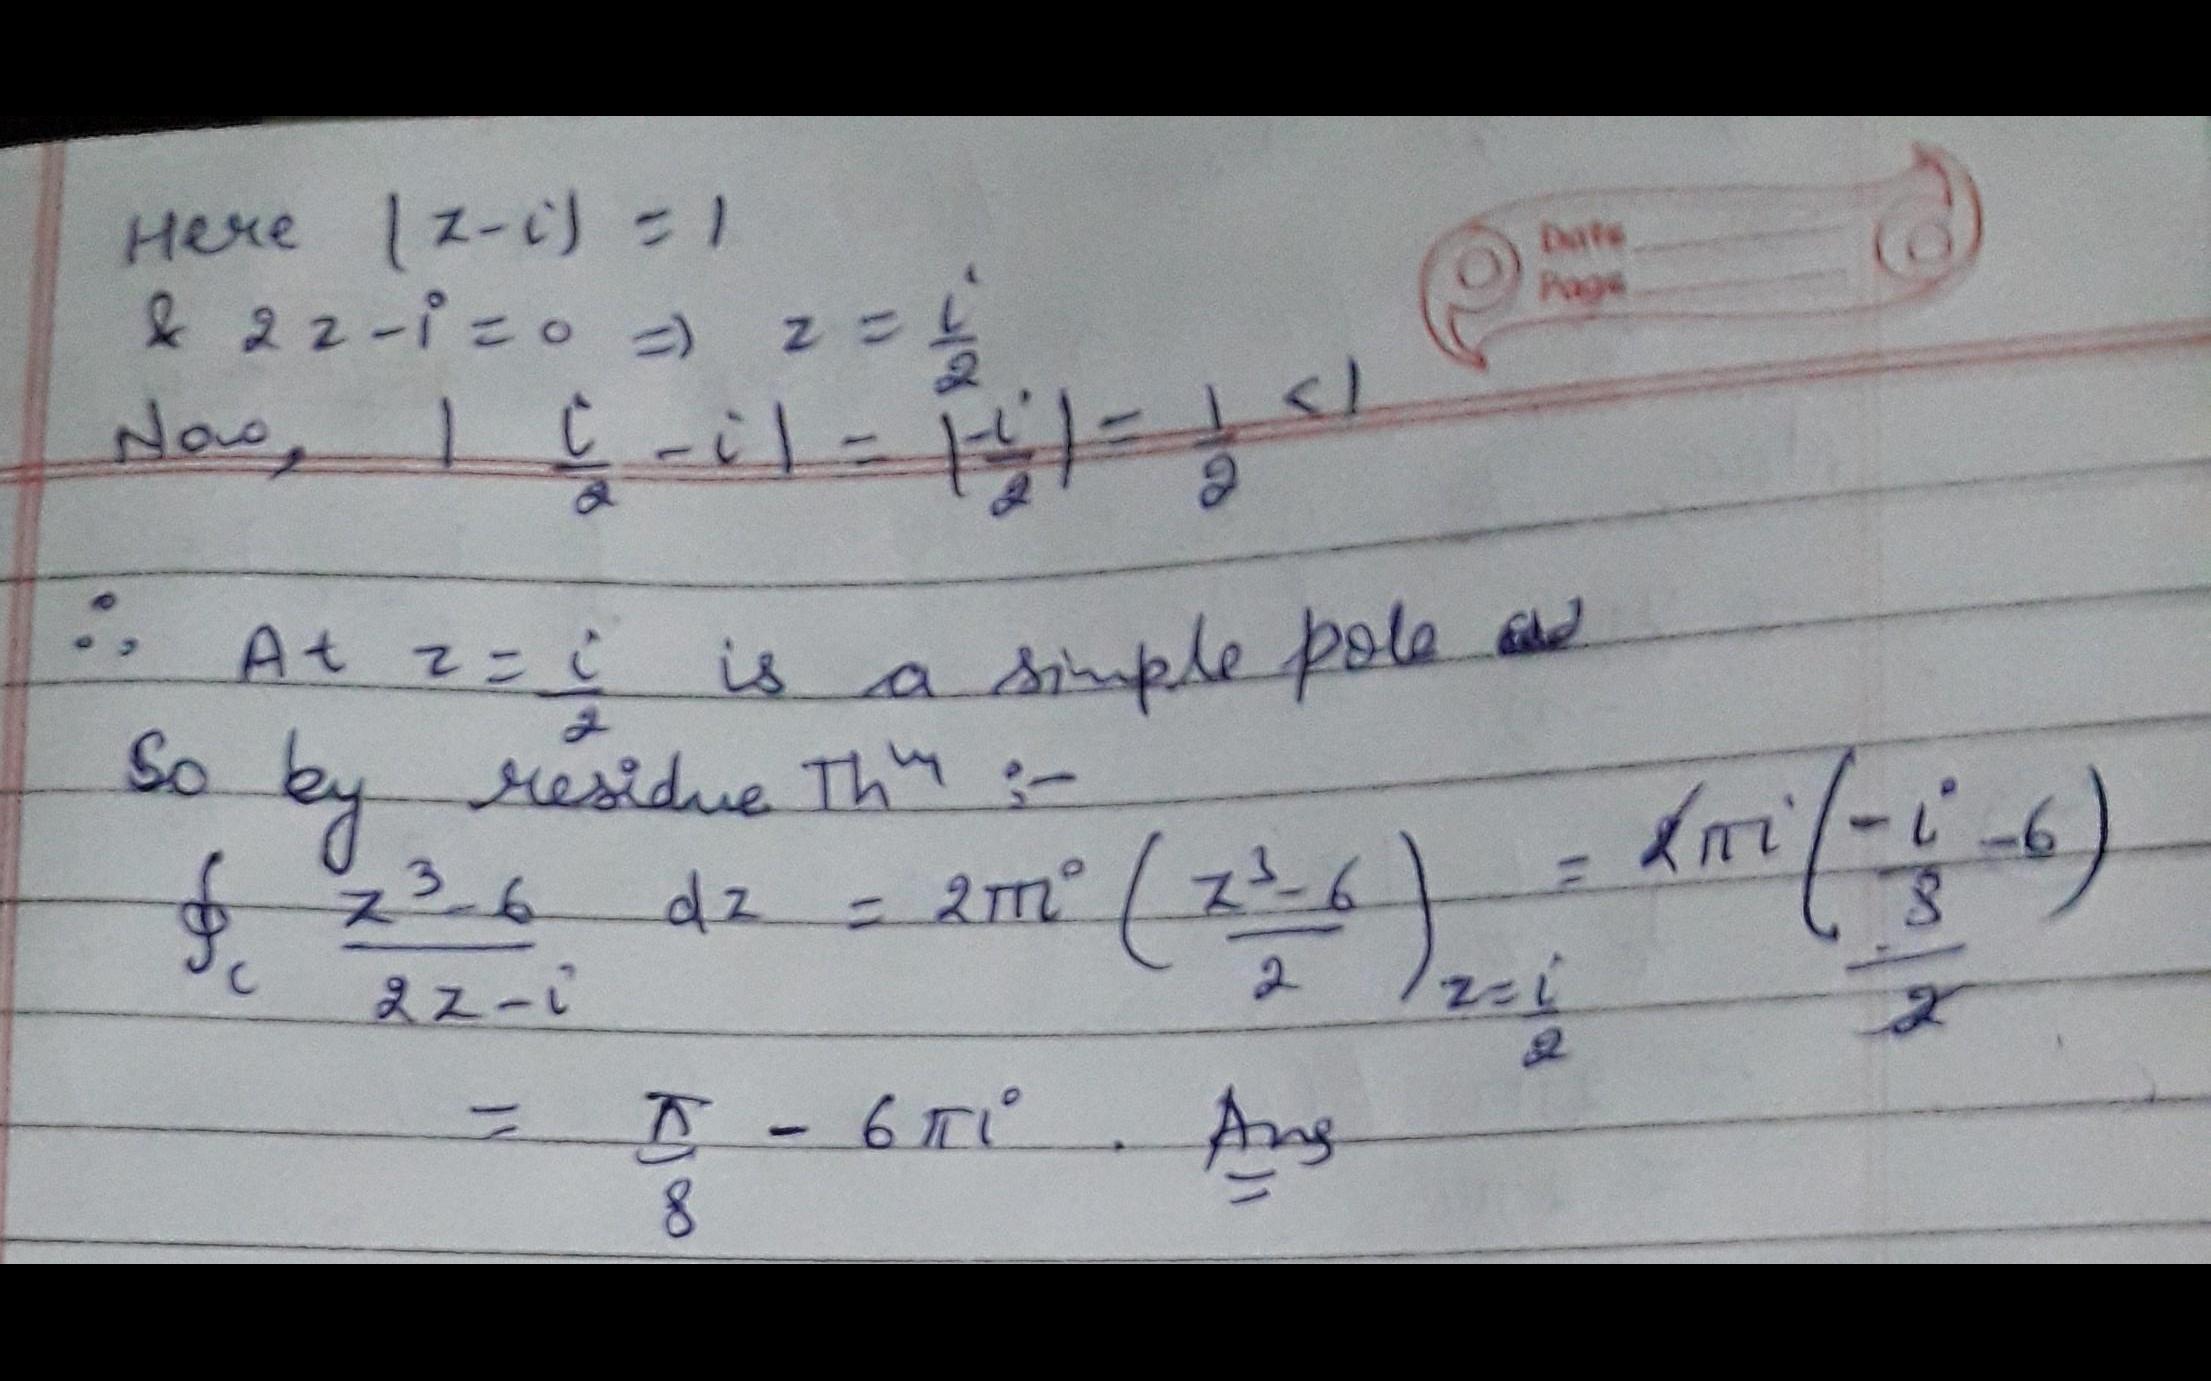 Date
Page
Here |z-i| = 1
& 2z-i=0 => z = i/2
Now, | i/2 - i| = |-i/2| = 1/2 < 1
∴ At z = i/2 is a simple pole
So by residue Thm :-
∮c (z³-6)/(2z-i) dz = 2πi ( (z³-6)/2 ) z=i/2 = 2πi (-i/8 -6)/2
= π/8 - 6πi . Ans